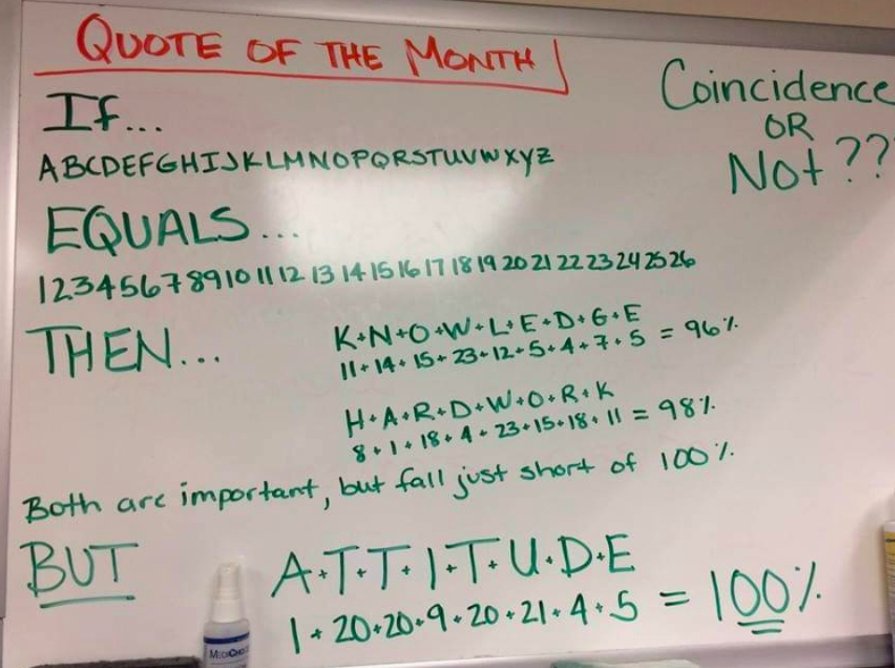 QUOTE OF THE MONTH
Coincidence
OR
Not ??
If...
ABCDEFGHIJKLMNOPQRSTUVWXYZ
EQUALS...
1 2 3 4 5 6 7 8 9 10 11 12 13 14 15 16 17 18 19 20 21 22 23 24 25 26
THEN...
K+N+O+W+L+E+D+G+E
11+14+15+23+12+5+4+7+5 = 96%
H+A+R+D+W+O+R+K
8+1+18+4+23+15+18+11 = 98%
Both are important, but fall just short of 100%.
BUT
A+T+T+I+T+U+D+E
1+20+20+9+20+21+4+5 = 100%